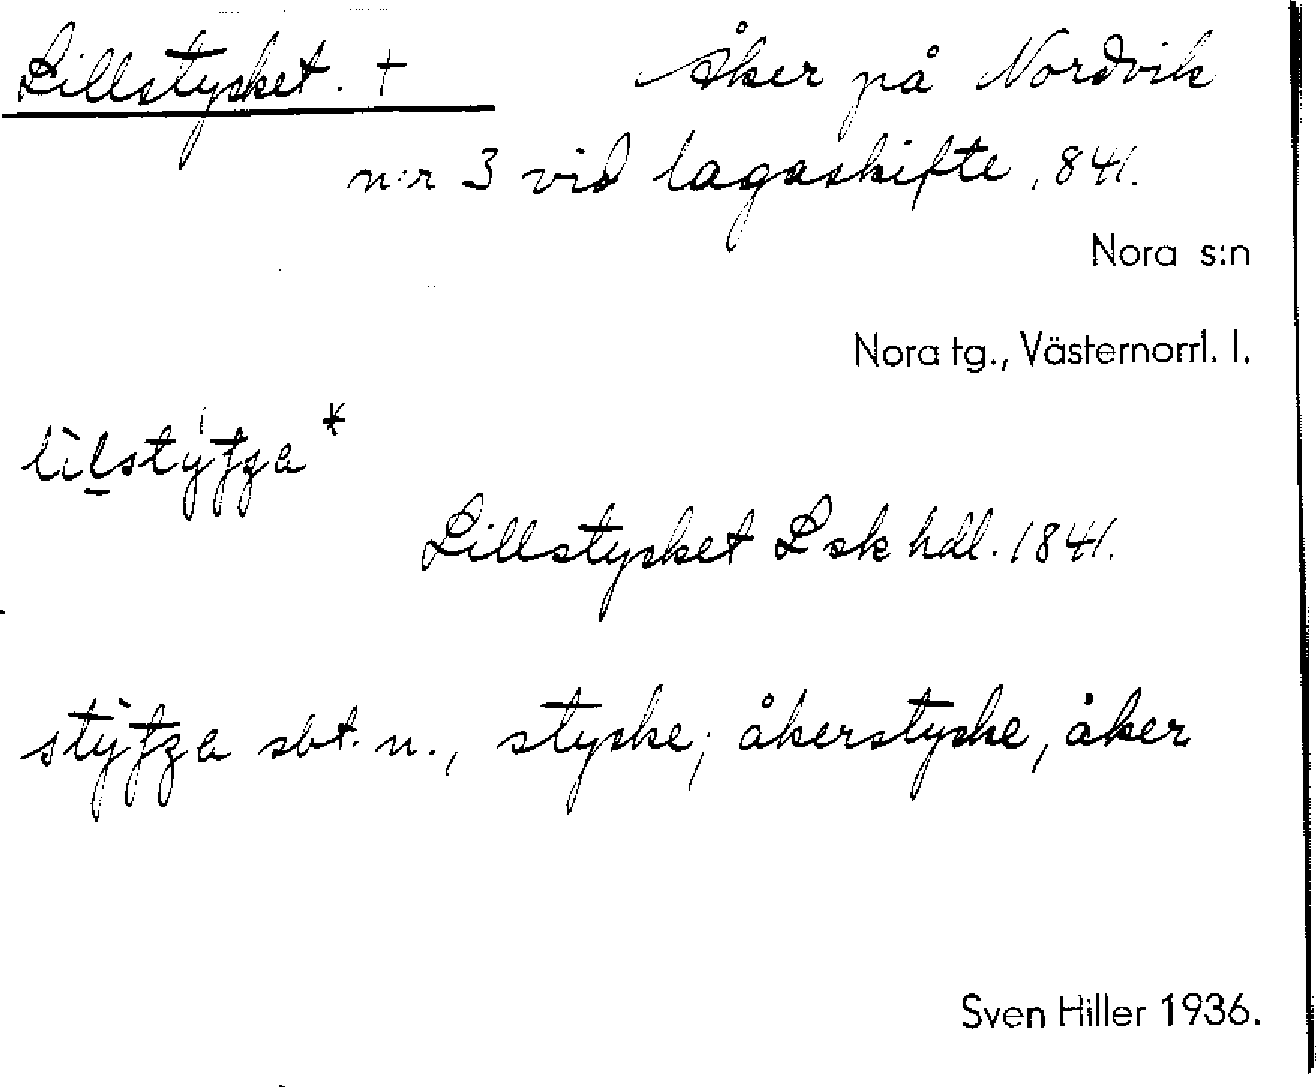 Lillstycket. † Åker på Nordvik
n:r 3 vid lagaskifte 1841.
Nora s:n
Nora tg., Västernorrl. l.
Lillstycket Lsk hdl. 1841.
sbt. n., stycke; åkerstycke, åker
Sven Hiller 1936.